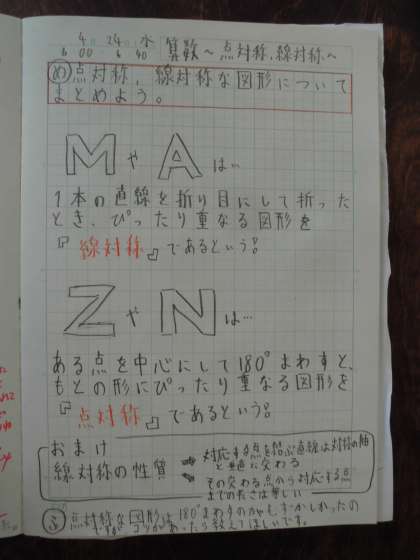 4 24 水 算数~点対称、線対称~
6 00 6 40
め 点対称、線対称な図形について
まとめよう。
M や A は…
1本の直線を折り目にして折った
とき、ぴったり重なる図形を
『線対称』であるという。
Z や N は…
ある点を中心にして180°まわすと、
もとの形にぴったり重なる図形を
『点対称』であるという。
おまけ
線対称の性質
対応する点を結ぶ直線は対称の軸
と垂直に交わる
その交わる点から対応する点
までの長さは等しい
ふ 点対称な図形は180°まわすのがむずかしかったの
ですが、コツがあったら教えてほしいです。